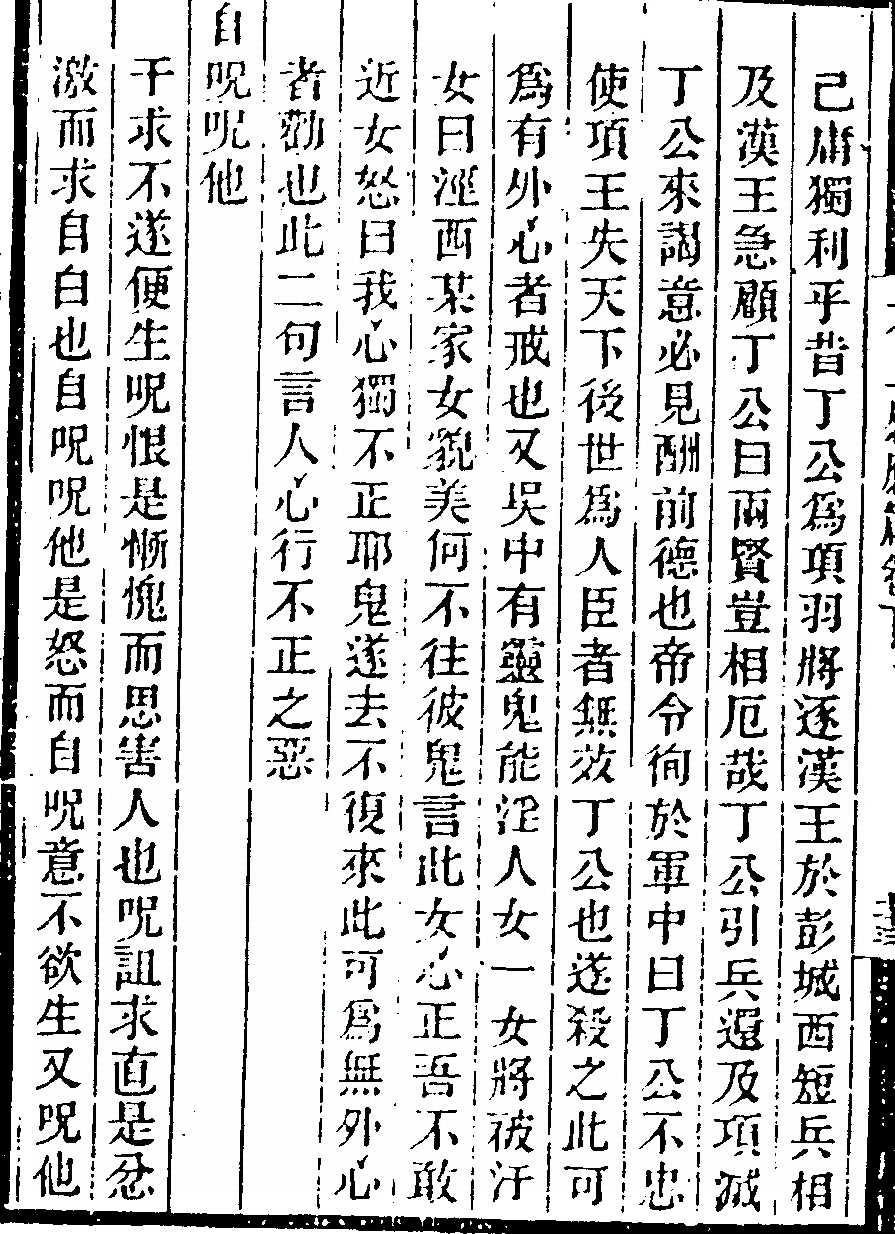 己庸獨利乎昔丁公爲項羽將逐漢王於彭城西短兵相
及漢王急顧丁公曰兩賢豈相厄哉丁公引兵還及項滅
丁公來謁意必見酬前德也帝令徇於軍中曰丁公不忠
使項王失天下後世爲人臣者無效丁公也遂殺之此可
爲有外心者戒也又吳中有靈鬼能淫人女一女將被汙
女曰涇西某家女貌美何不往彼鬼言此女心正吾不敢
近女怒曰我心獨不正耶鬼遂去不復來此可爲無外心
者勸也此二句言人心行不正之惡
自呪呪他
干求不遂便生呪恨是慚愧而思害人也呪詛求直是忿
激而求自白也自呪呪他是怒而自呪意不欲生又呪他